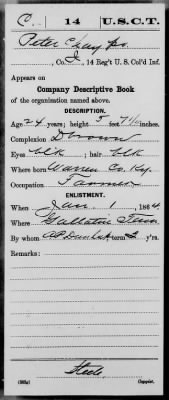 C. 14 U.S.C.T.
Peter
, Co. I, 14 Reg't U. S. Col'd Inf.
Appears on
Company Descriptive Book
of the organization named above.
DESCRIPTION.
Age 24 years; height 5 feet 7½ inches.
Complexion Brown
Eyes blk ; hair blk
Where born Warren Co. Ky.
Occupation Farmer
ENLISTMENT.
When Jan. 1, 1864.
Where Gallatin Tenn
By whom A P Dunlap term 3 y'rs.
Remarks:
Steele
Copyist.